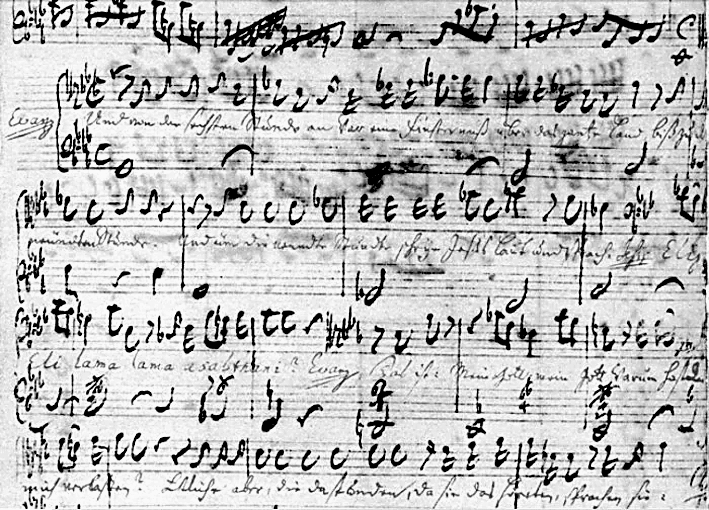 Evang Und von der sechsten Stunde an war eine Finsterniß über das gantze Land, biß zu d
neundten Stunde. Und um die neundte Stunde schrye Jesus laut und sprach: Jesus Eli,
Eli lama lama asabthani? Evang Das ist: Mein Gott, mein Gott, warum hastu
mich verlaßen? Etliche aber, die da stunden, da sie das höreten, sprachen sie: